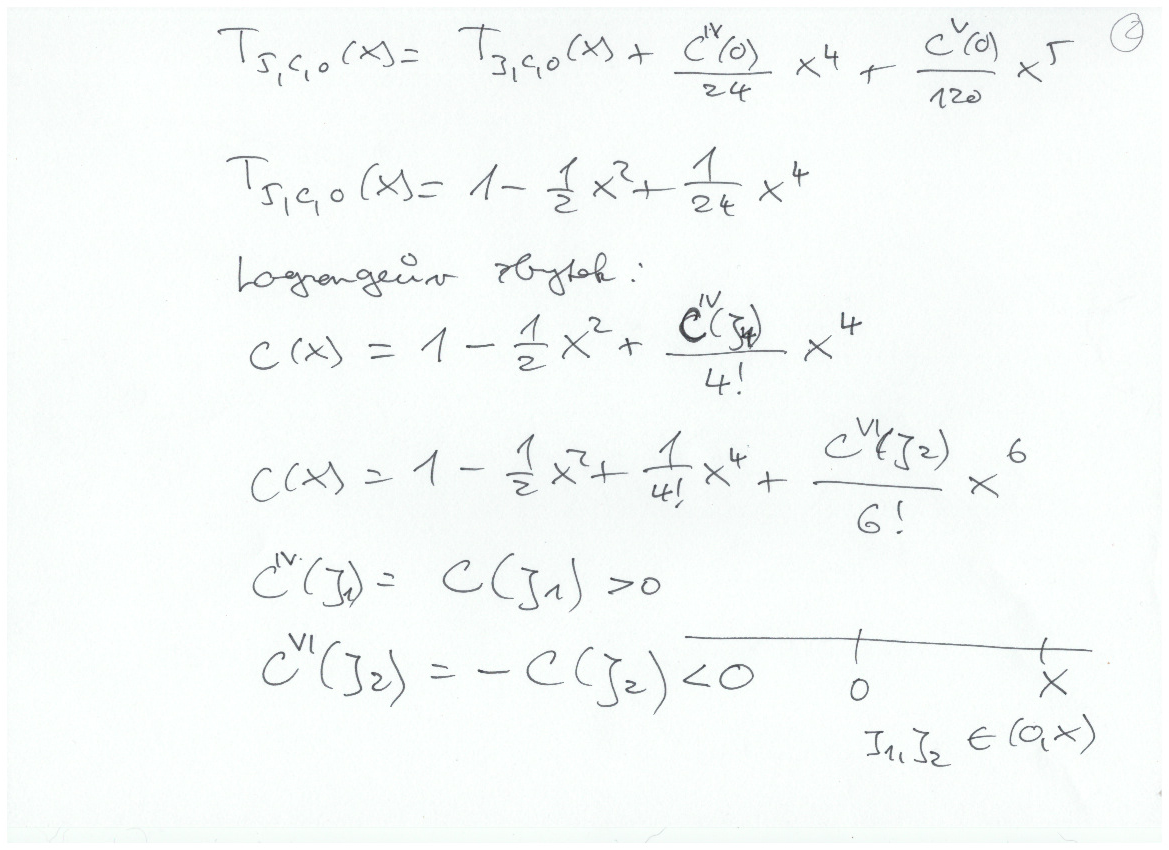 ②
T_{5,C,0}(x) = T_{3,C,0}(x) + \frac{C^{IV}(0)}{24} x^4 + \frac{C^{V}(0)}{120} x^5
T_{5,C,0}(x) = 1 - \frac{1}{2} x^2 + \frac{1}{24} x^4
Lagrangeův zbytek :
C(x) = 1 - \frac{1}{2} x^2 + \frac{C^{IV}(ξ_1)}{4!} x^4
C(x) = 1 - \frac{1}{2} x^2 + \frac{1}{4!} x^4 + \frac{C^{VI}(ξ_2)}{6!} x^6
C^{IV}(ξ_1) = C(ξ_1) > 0
C^{VI}(ξ_2) = - C(ξ_2) < 0
0 x
ξ_1, ξ_2 ∈ (0, x)